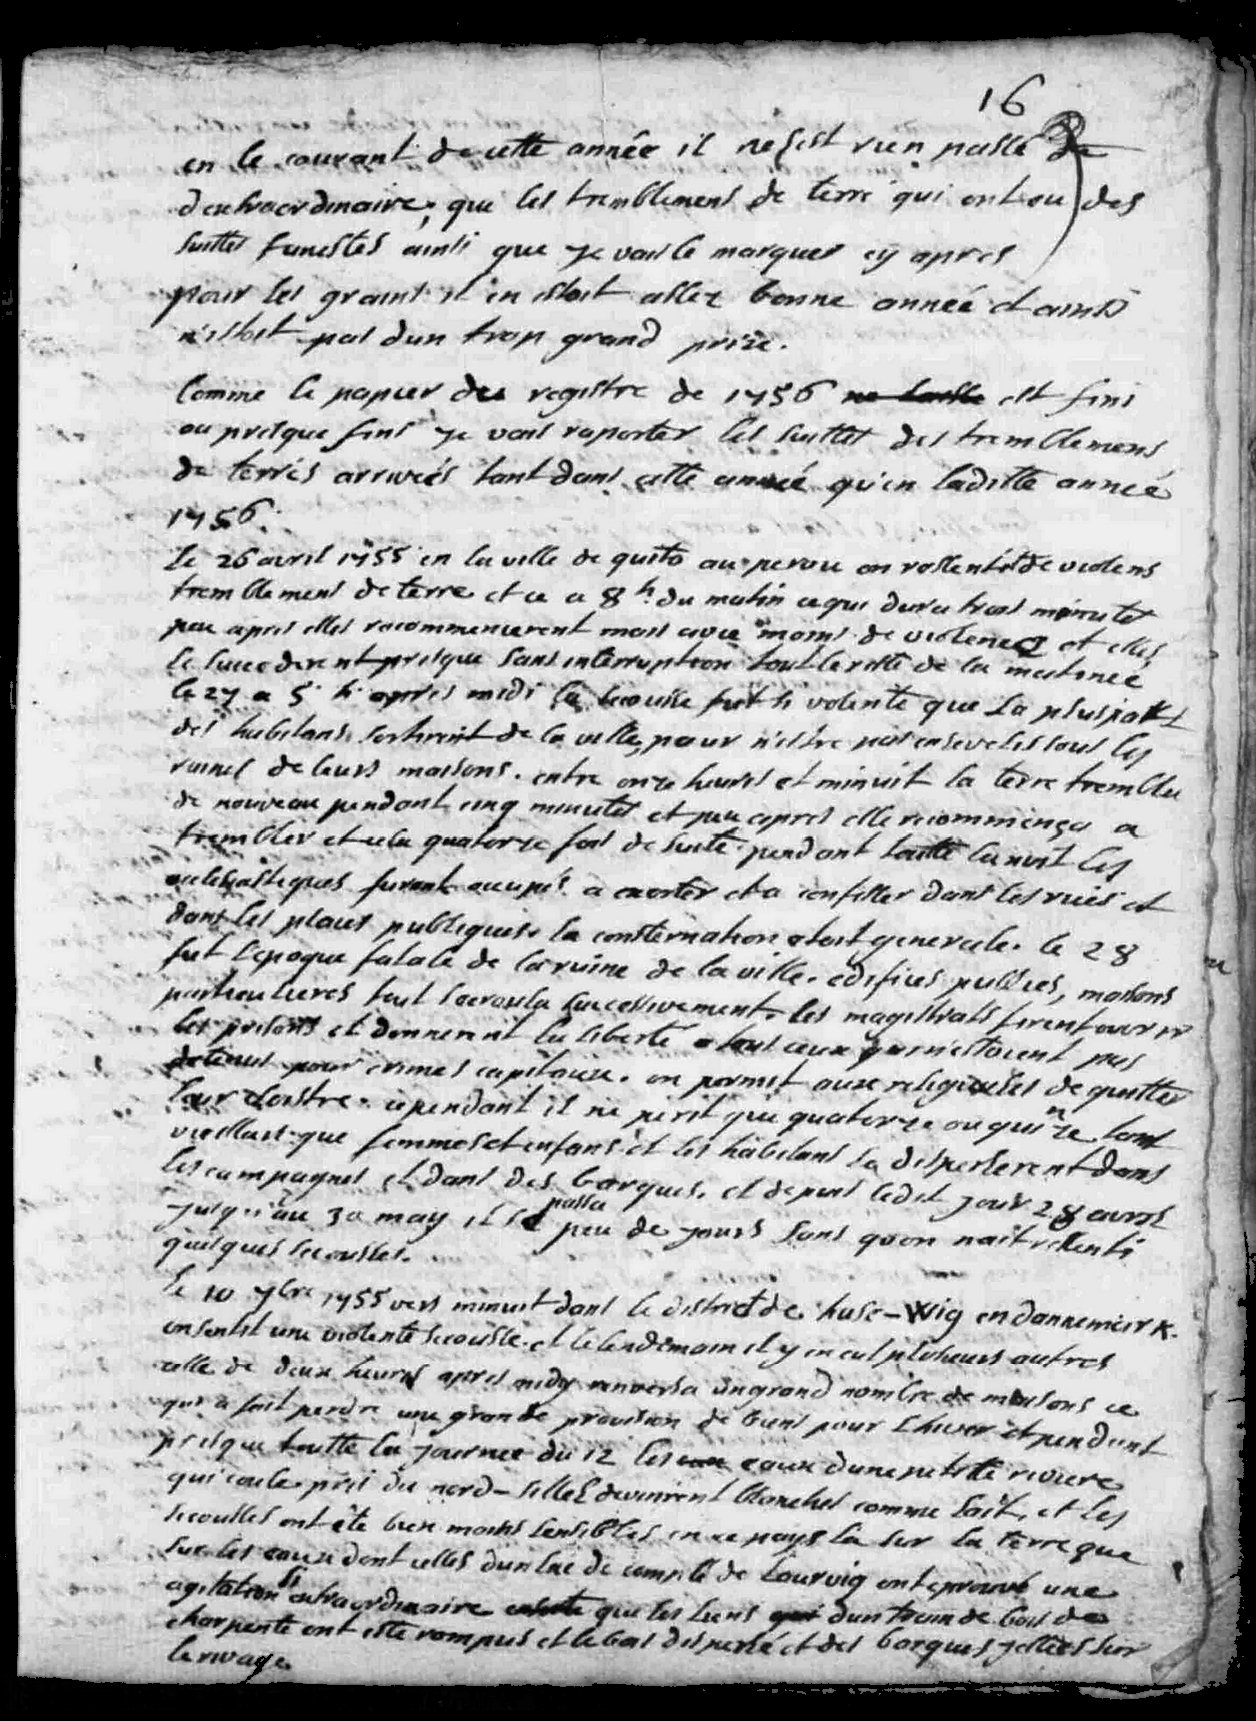 16
en le courant de cette année il ne sest rien passé de
dextraordinaire, que les tremblemens de terre qui ont eu des
suittes funestes ainsi que je vais le marquer cy apres
pour les grains il en estoit assez bonne année et ainsi
n'estoit pas dun trop grand prix.
Comme le papier du registre de 1756 est fini
ou presque fini je vais raporter les suittes des tremblemens
de terrès arrivés tant dans cette année qu'en laditte année
1756.
Le 26 avril 1755 en la ville de quito au perou on ressentit de violens
tremblement de terre et ce a 8 h. du matin ce qui dura trois minutes
peu apres elles recommencerent mais avec moins de violence et elles
se succederent presque sans interruption tout le reste de la matinée
le 27 a 5 h. apres midi la secousse fut si violente que la pluspart
des habitans sortirent de la ville, pour n'estre pas ensevelis sous les
ruines de leurs maisons. entre onze heures et minuit la terre trembla
de nouveau pendant cinq minutes et peu apres elle recommença a
trembler et cela quatorze fois de suite. pendant toutte la nuit les
eclesiastiques furent occupés a exorter et a confesser dans les rües et
dans les places publiques. la consternation etoit generale. le 28
fut l'epoque fatale de la ruine de la ville. edifices publics, maisons
particulieres tout s'ecroula successivement. les magistrats firent ouvrir
les prisons et donnerent la liberté a tous ceux qui n'estoient pas
detenus pour crimes capitaux. on permit aux religieuses de quitter
leur cloistre. cependant il ne périt que quatorze ou quinze tant
vieillars que femmes et enfans et les habitans se disperserent dans
les campagnes et dans des barques. et depuis ledit jour 28 avril
jusqu'au 30 may il se passa peu de jours sans qu'on n'ait ressenti
quelques secousses.
Le 10 7bre 1755 vers minuit dans le district de huse-Wig en dannemark.
on sentit une violente secousse. et le lendemain il y en eut plusieurs autres
celle de deux heures apres midy renversa un grand nombre de maisons ce
qui a fait perdre une grande provision de biens pour l'hiver et pendant
presque toutte la journee du 12 les eaux dune petitte riviere
qui coule près du nord-silles devinrent blanches comme lait, et les
secousses ont été bien moins sensibles en ce pays la sur la terre que
sur les eaux dont celles dun lac de comté de Lourvig ont eprouvé une
agitation si extraordinaire que les liens dun train de bois de
charpente ont esté rompus et le bois dispersé et des barques jettées sur
le rivage